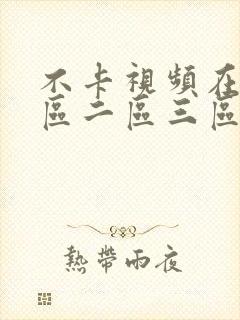 不卡視頻在
區二區三區
熱帶雨夜